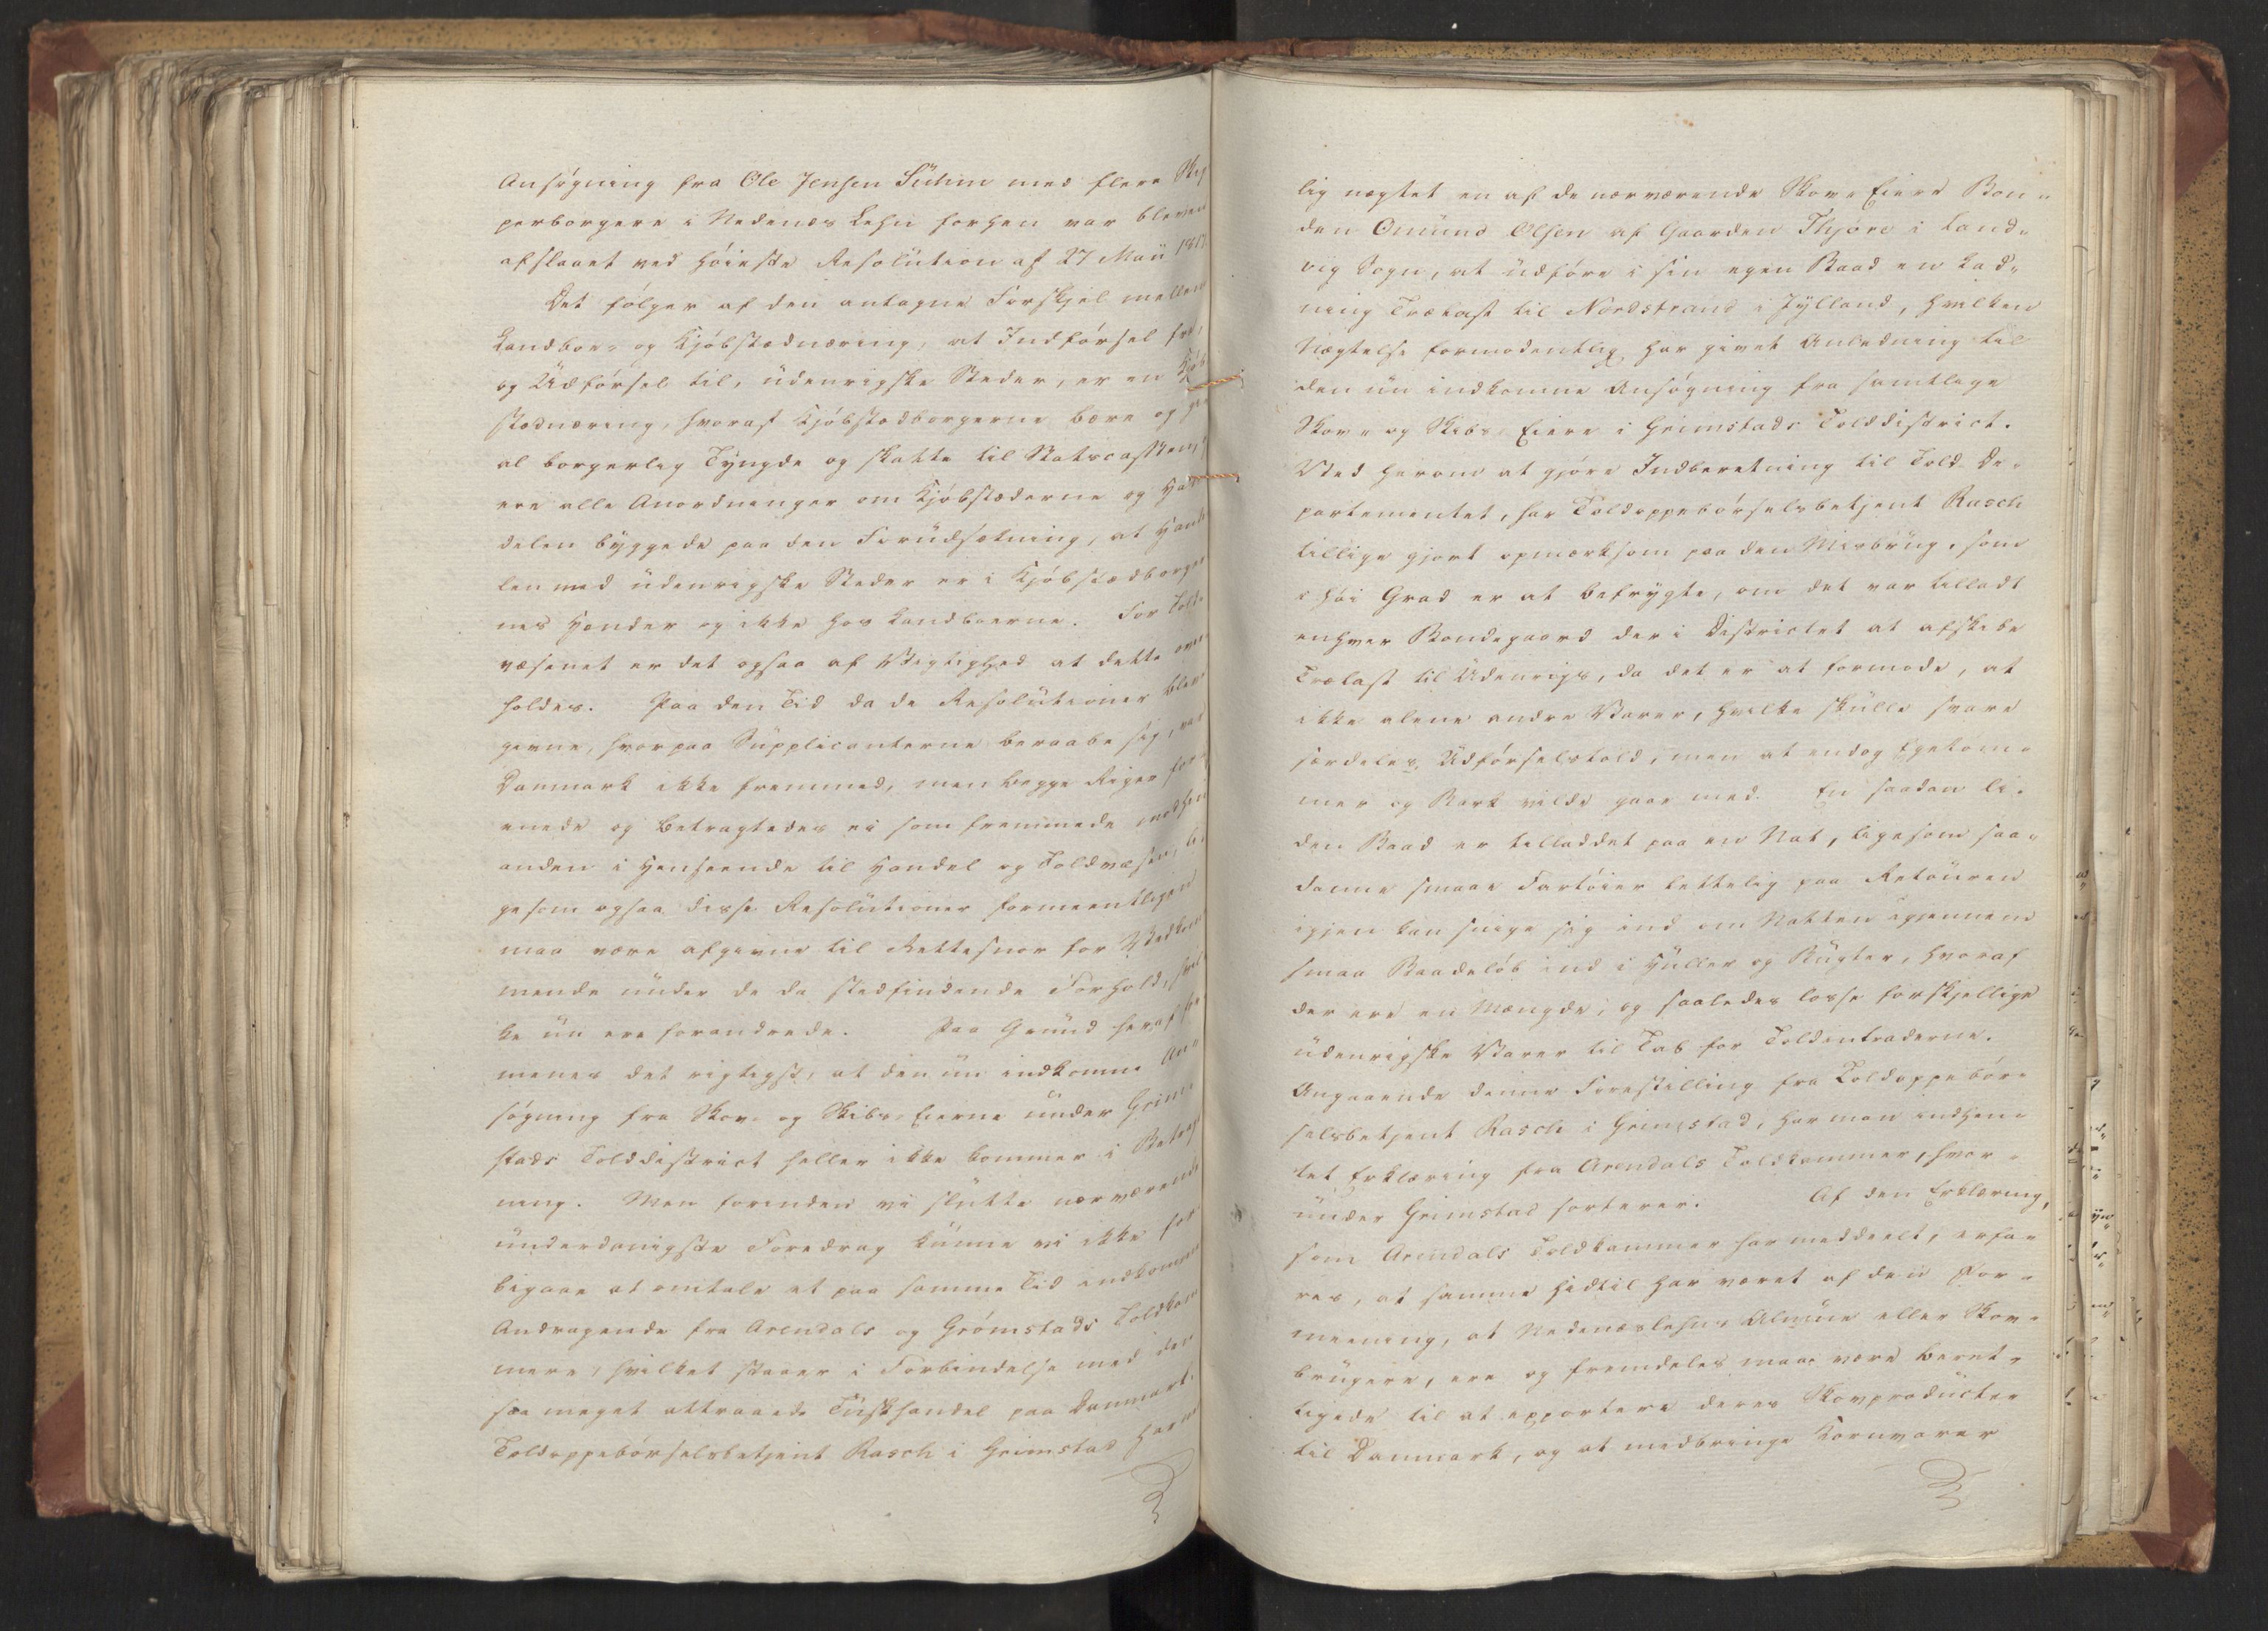 Ansøgning fra Ole Jensen Sühm med flere Skip
perborgere i Nedenæs Lehn forhen var bleven
afslaaet ved høieste Resolution af 27 Maii 181
Det følger af den antagne Forskjel mellem
Landboe- og Kjøbstædnæring, at Indførsel fra,
og Udførsel til, udenrigske Steder, er en Kjøb
stædnæring, hvoraf Kjøbstædborgerne bære og
al borgerlig Tyngde og skatte til Statscassen,
ere alle Anordninger om Kjøbstæderne og Han
delen byggede paa den Forudsætning, at Hand
len med udenrigske Steder er i Kjøbstædborger
nes Hænder og ikke hos Landboerne. For Told
væsenet er det ogsaa af Vigtighed at dette over
holdes. Paa den Tid da de Resolutioner bleve
givne, hvorpaa Supplicanterne beraabe sig, var
Danmark ikke fremmed, men begge Riger for
enede og betragtedes ei som fremmede mod hin
anden i Henseende til Handel og Toldvæsen, li
gesom ogsaa disse Resolutioner formeentligen
maa være afgivne til Rettesnor for Vedkom
mende under de da stedfindende Forhold, hvil
ke nu ere forandrede. Paa Grund heraf for
menes det rigtigst, at den nu indkomne An
søgning fra Skov- og Skibs-Eierne under Grim
stads Tolddistrict heller ikke kommer i Betrag
ning. Men forinden vi slutte nærværende
underdanigste Foredrag kunne vi ikke for
bigaae at omtale et paa samme Tid indkommen
Andragende fra Arendals og Grømstads Toldkam
mere, hvilket staaer i Forbindelse med den
saa meget attraaede Tuskhandel paa Danmark.
Toldoppebørselsbetjent Rasch i Grimstad har
lig nægtet en af de nærværende Skov-Eiere Bon-
den Omund Olsen af Gaarden Thjøre i Land-
vig Sogn, at udføre i sin egen Baad en Lad-
ning Trælast til Nordstrand i Jylland, hvilken
Nægtelse formodentlig har givet Anledning til
den nu indkomne Ansøgning fra samtlige
Skov- og Skibs-Eiere i Grimstads Tolddistrict.
Ved herom at gjøre Indberetning til Told-De-
partementet, har Toldoppebørselsbetjent Rasch
tillige gjort opmærksom paa den Misbrug, som
i høi Grad er at befrygte, om det var tilladt
enhver Bondegaard der i Districtet at afskibe
Trælast til Udenrigs, da det er at formode, at
ikke alene andre Varer, hvilke skulle svare
særdeles Udførselstold, men at endog Egetøm-
mer og Bark vilde gaae med. En saadan li-
den Baad er tilladdet paa en Nat, ligesom saa-
danne smaae Fartøier lettelig paa Retouren
igjen kan snige sig ind om Natten igjennem
smaa Baadeløb ind i Huller og Bugter, hvoraf
der ere en Mængde; og saaledes losse forskjellige
udenrigske Varer til Tab for Toldintraderne.
Angaaende denne Forestilling fra Toldoppebør-
selsbetjent Rasch i Grimstad, har man indhen-
tet Erklæring fra Arendals Toldkammer, hvor-
under Grimstad sorterer. Af den Erklæring,
som Arendals Toldkammer har meddeelt, erfa-
res, at samme hidtil har været af den For-
meening, at Nedenæslehns Almue eller Skov-
brugere, ere og fremdeles maae være beret-
tigede til at exportere deres Skovproducter
til Danmark, og at medbringe Kornvarer